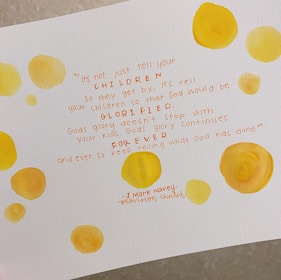 "its not just tell your
CHILDREN
so they get by, it's tell
your children so that God would be
GLORIFIED.
Gods glory doesn't stop with
your kids. Gods glory continues
FOREVER
and ever so keep telling what God has done"
- J Mark Navey,